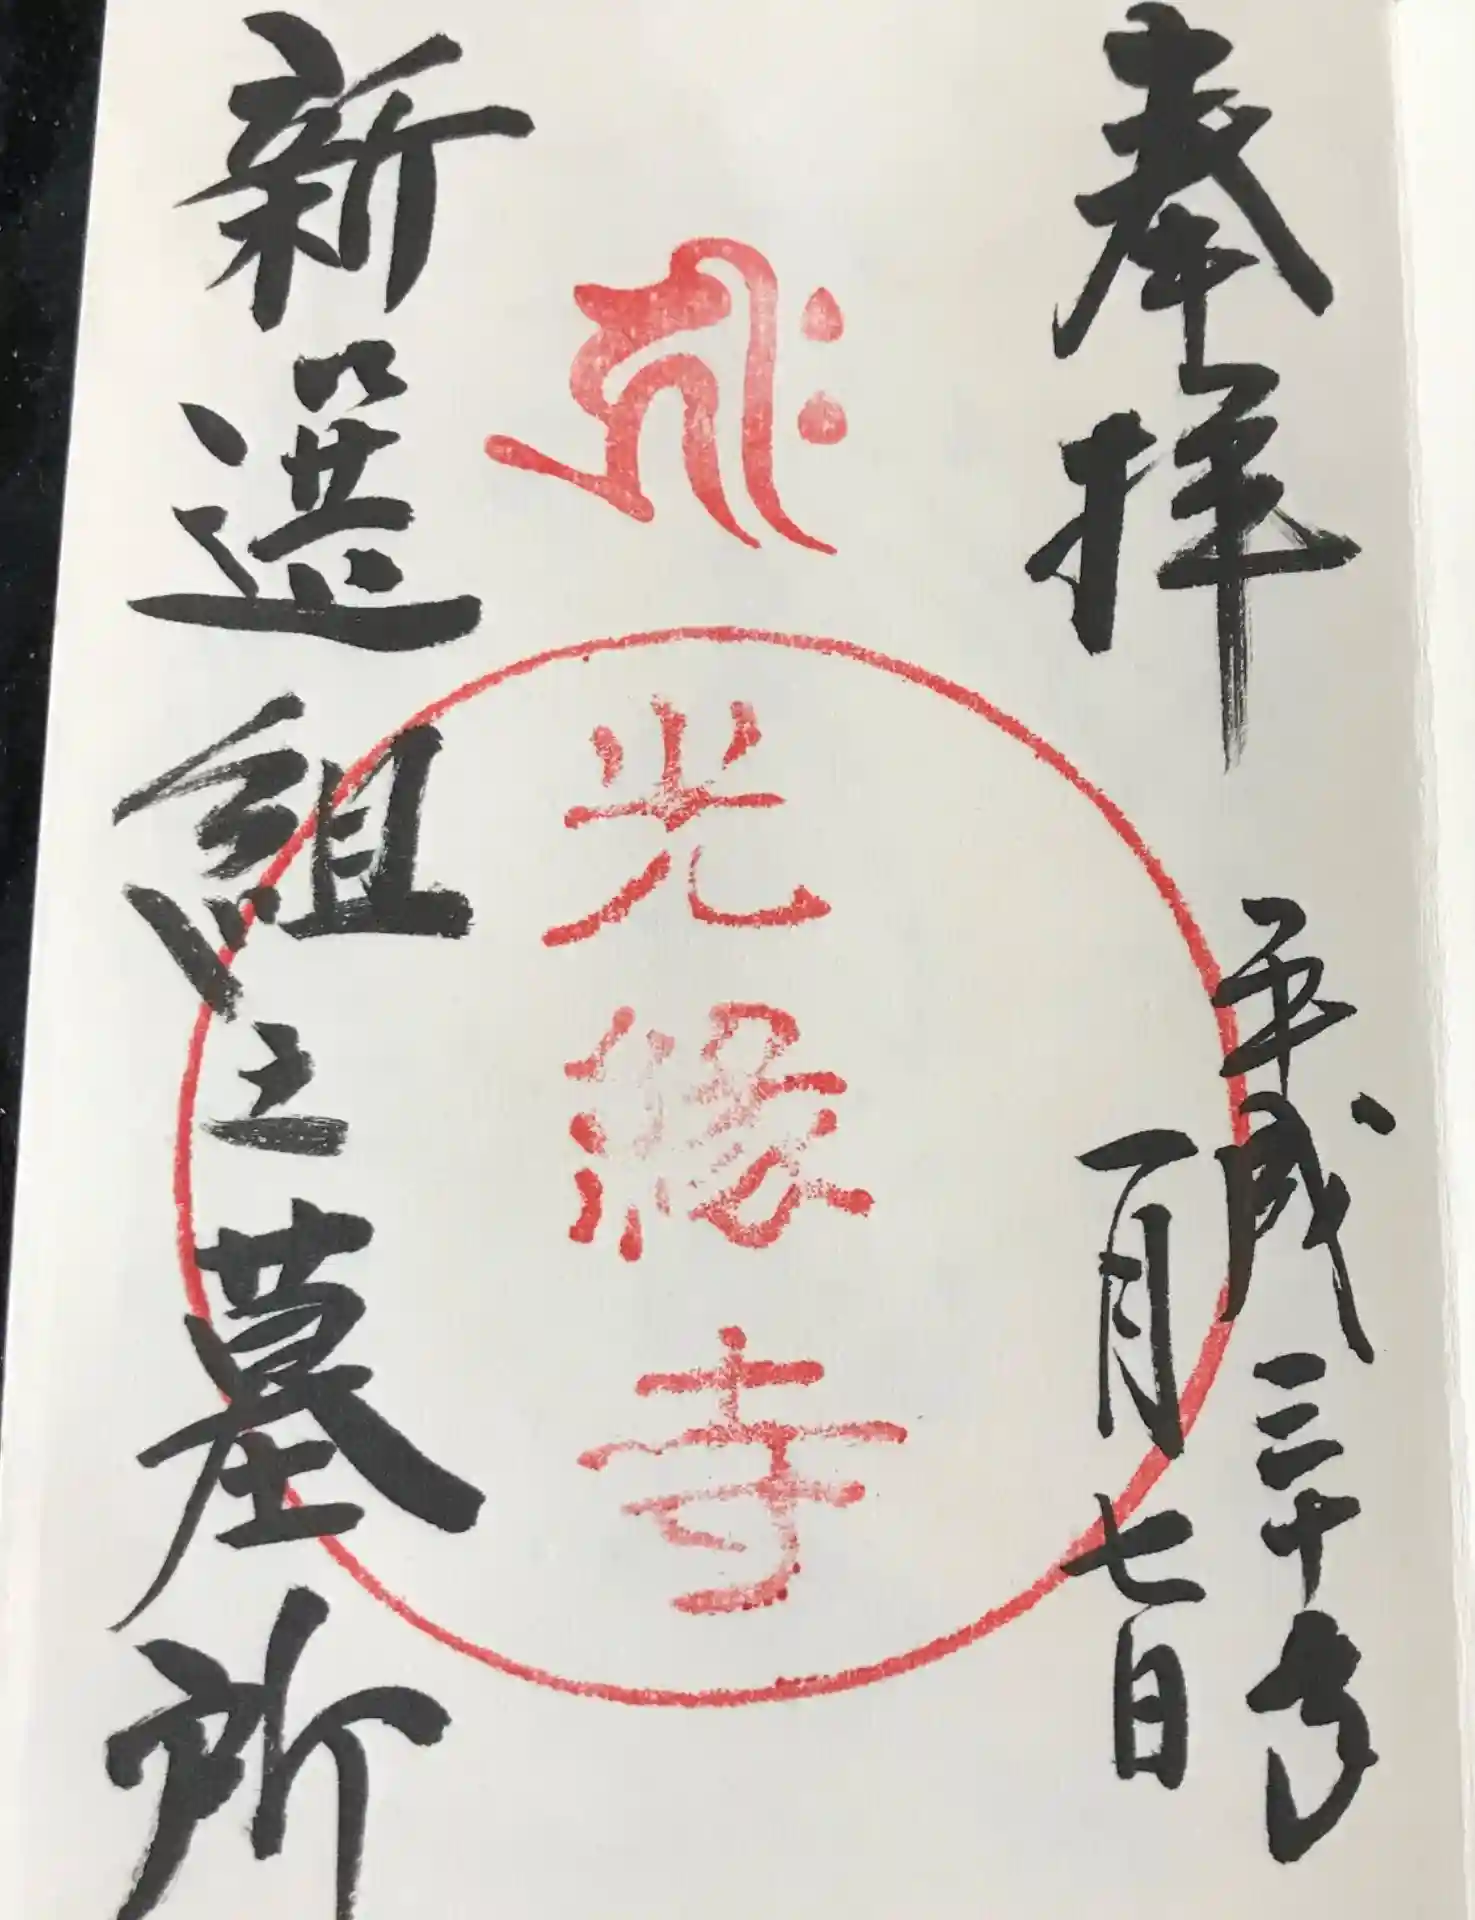 奉拝
平成三十年
一月七日
𑖮𑖿𑖨𑖱𑖾
光縁寺
新選組之墓所